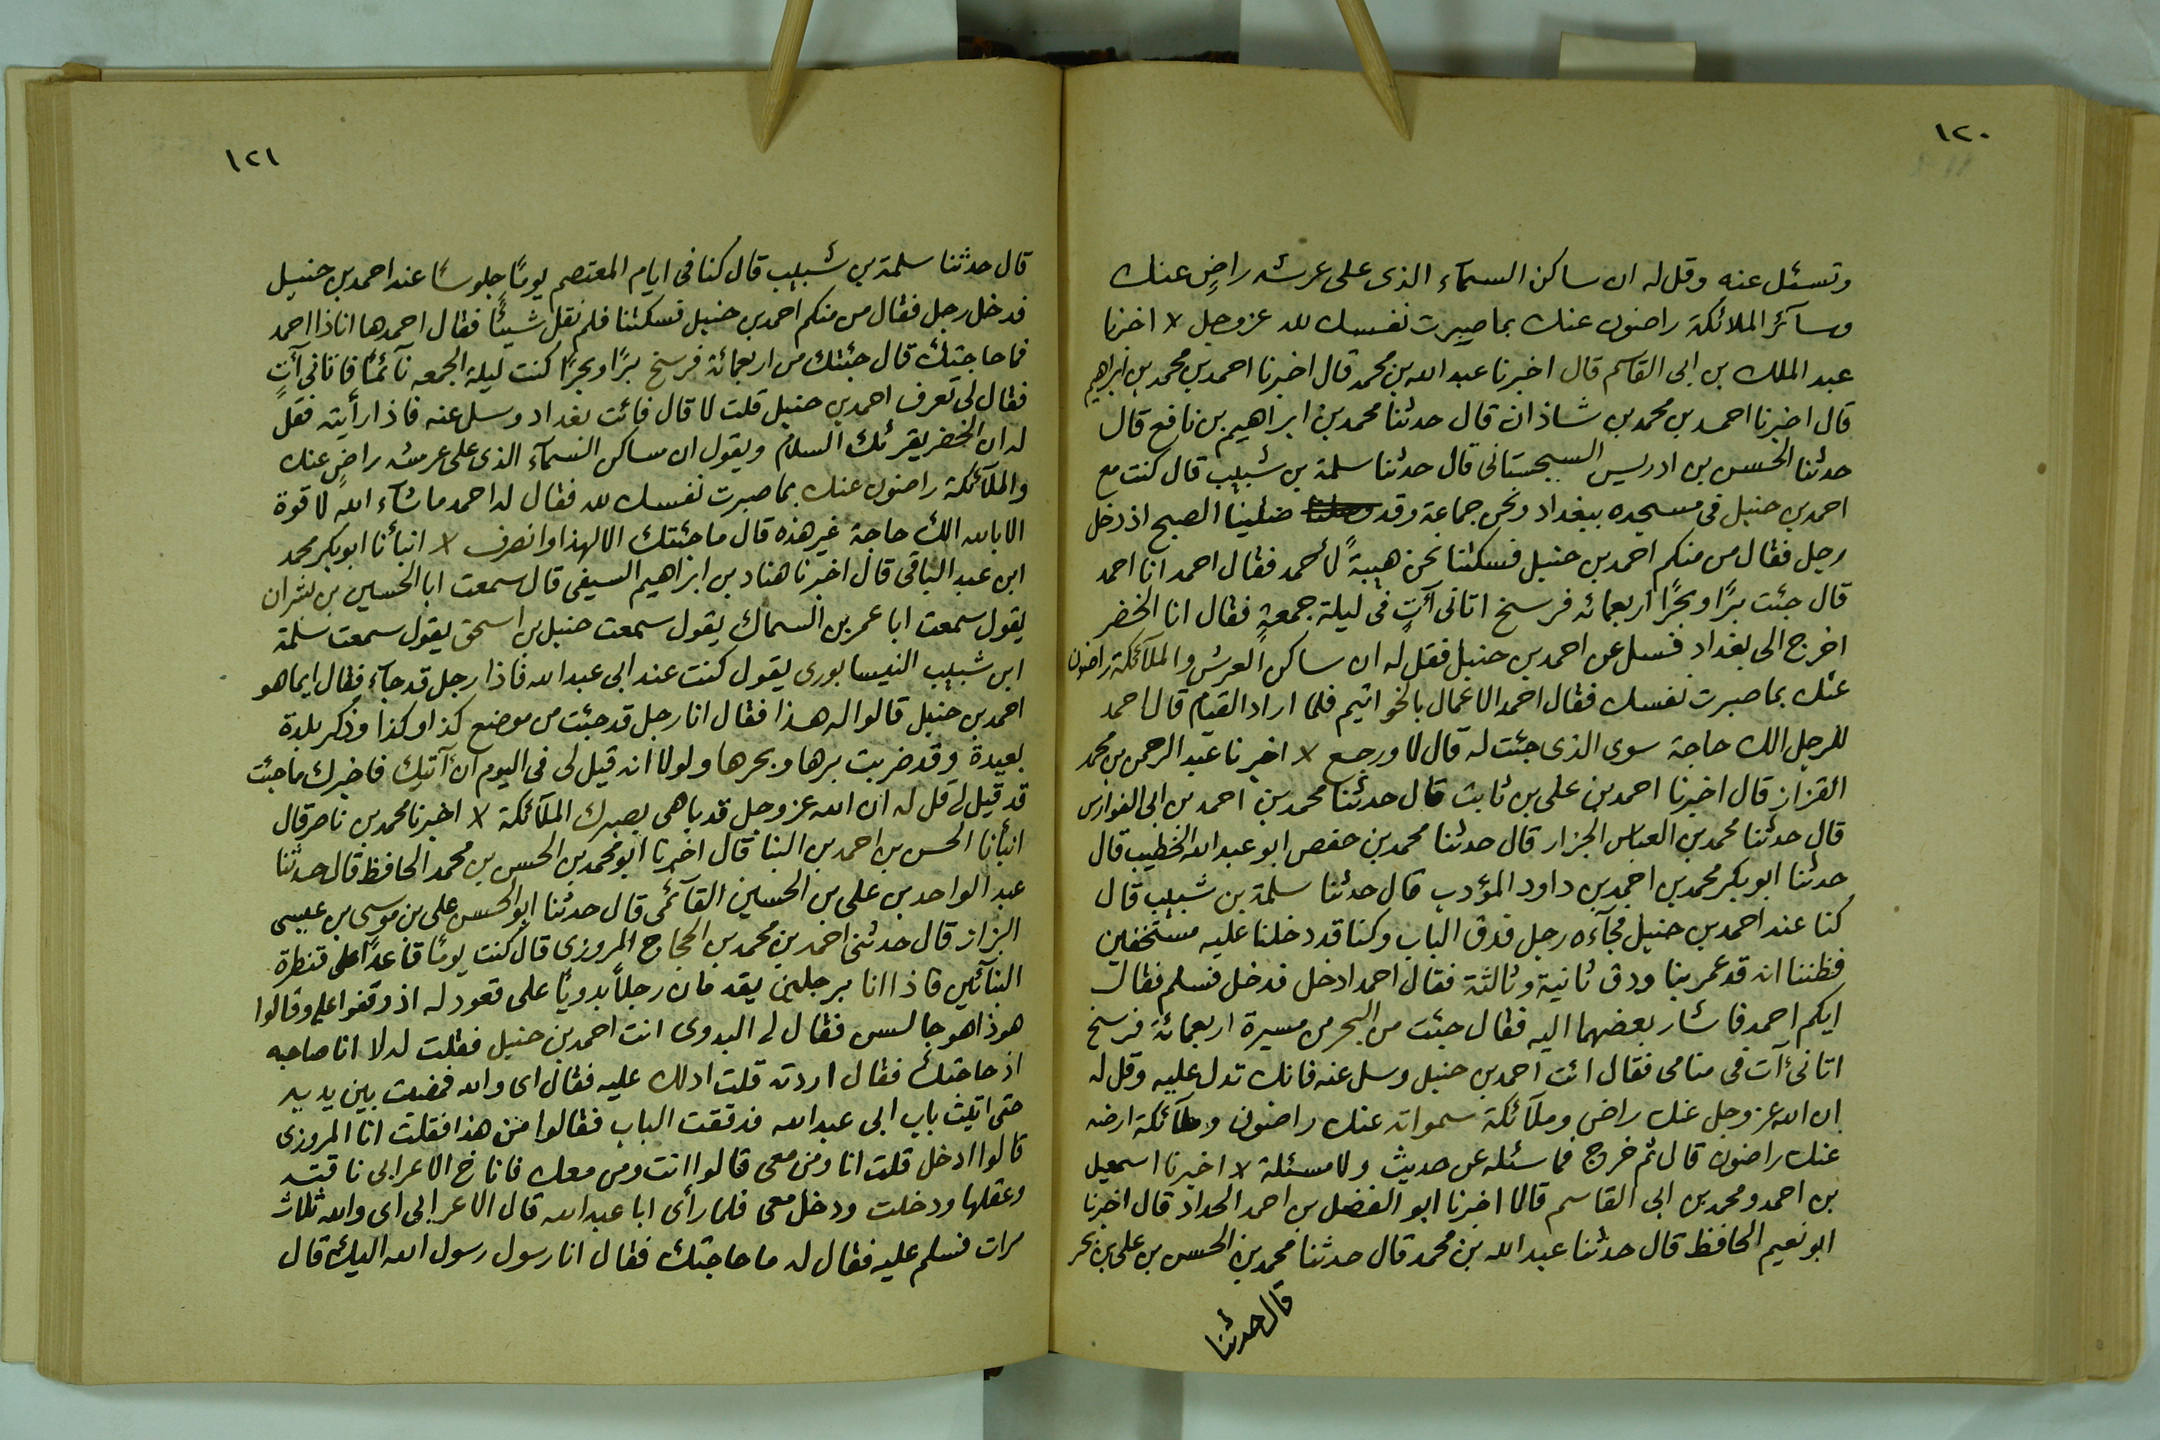 ١٢٠
وتسئل عنه وقل له ان ساكن السمآء الذى على عرشه راضٍ عنك
وسآئر الملائكة راضون عنك بما صبرت نفسك لله عز وجل لا اخبرنا
عبد الملك بن ابى القاسم قال اخبرنا عبد الله بن محمد قال اخبرنا احمد بن محمد بن ابراهيم
قال اخبرنا احمد بن محمد بن شاذان قال حدثنا محمد بن ابراهيم بن نافع قال
حدثنا الحسن بن ادريس السجستانى قال حدثنا سلمة بن شبيب قال كنت مع
احمد بن حنبل فى مسجده ببغداد ونحن جماعة وقد صلينا الصبح اذ دخل
رجل فقال من منكم احمد بن حنبل فسكتنا نحن هيبةً لأحمد فقال احمد انا احمد
قال جئت برًا وبحرًا اربعمائه فرسخ اتانى آتٍ فى ليلة جمعةٍ فقال انا الخضر
اخرج الى بغداد فسل عن احمد بن حنبل فقل له ان ساكن العرش والملآئكة راضون
عنك بما صبرت نفسك فقال احمد الاعمال بالخواتيم فلما اراد القيام قال احمد
للرجل الك حاجة سوى الذى جئت له قال لا ورجع لا اخبرنا عبد الرحمن بن محمد
القزاز قال اخبرنا احمد بن على بن ثابت قال حدثنا محمد بن احمد بن ابى الفوارس
قال حدثنا محمد بن العباس الجزار قال حدثنا محمد بن حفص ابو عبد الله الخطيب قال
حدثنا ابو بكر محمد بن احمد بن داود المؤدب قال حدثنا سلمة بن شبيب قال
كنا عند احمد بن حنبل فجآءه رجل فدق الباب وكنا قد دخلنا عليه مستخفين
فظننا انه قد غمر بنا ودق ثانية وثالثة فقال احمد ادخل فدخل فسلم فقال
ايكم احمد فاشار بعضهما اليه فقال جئت من البحر من مسيرة اربعمائة فرسخ
اتانى آت فى منامى فقال ائت احمد بن حنبل وسل عنه فانك تدل عليه وقل له
ان الله عز وجل عنك راض وملآئكة سمواته عنك راضون وملآئكة ارضه
عنك راضون قال ثم خرج فما سئله عن حديث ولا مسئلة لا اخبرنا اسمعيل
بن احمد ومحمد بن ابى القاسم قالا اخبرنا ابو الفضل بن احمد الحداد قال اخبرنا
ابو نعيم الحافظ قال حدثنا عبد الله بن محمد قال حدثنا محمد بن الحسن بن على بن بحر
قال حدثنا
١٢١
قال حدثنا سلمة بن شبيب قال كنا فى ايام المعتصم يومًا جلوسًا عند احمد بن حنبل
فدخل رجل فقال من منكم احمد بن حنبل فسكتنا فلم نقل شيئًا فقال احمد ها انا ذا احمد
فما حاجتك قال جئتك من اربعمائة فرسخ برًا وبحرًا كنت ليلة الجمعه نآئمًا فاتانى آتٍ
فقال لى تعرف احمد بن حنبل قلت لا قال فائت بغداد وسل عنه فاذا رأيته فقل
له ان الخضر يقرئك السلام ويقول ان ساكن السمآء الذى على عرشه راضٍ عنك
والملآئكة راضون عنك بما صبرت نفسك لله فقال له احمد ماشآء الله لا قوة
الا بالله الك حاجة غير هذه قال ما جئتك الا لهذا وانصرف لا انبأنا ابو بكر محمد
ابن عبد الباقى قال اخبرنا هناد بن ابراهيم السيفى قال سمعت ابا الحسين بن بشران
يقول سمعت ابا عمر بن السماك يقول سمعت حنبل بن اسحق يقول سمعت سلمة
ابن شبيب النيسابورى يقول كنت عند ابى عبد الله فاذا رجل قد جآء فقال ايما هو
احمد بن حنبل قالوا له هذا فقال انا رجل قد جئت من موضع كذا وكذا وذكر بلدة
بعيدة وقد ضربت برها وبحرها ولولا انه قيل لى فى اليوم ان آتيك فاخبرك ما جئت
قد قيل لى قل له ان الله عز وجل قد باهى بصبرك الملآئكة لا اخبرنا محمد بن ناصر قال
انبأنا الحسن بن احمد بن البنا قال اخبرنا ابو محمد بن الحسن بن محمد الحافظ قال حدثنا
عبد الواحد بن على بن الحسين القآئمى قال حدثنا ابو الحسن على بن موسى بن عيسى
البزاز قال حدثنى احمد بن محمد بن الحجاج المروزى قال كنت يومًا قاعدًا على قنطرة
البنآئين فاذا انا برجلين يقدمان رجلًا بدويًا على قعود له اذ وقفوا على وقالوا
هوذا هو جالس فقال لى البدوى انت احمد بن حنبل فقلت له لا انا صاحبه
اذ حاجتك فقال اردته قلت ادلك عليه فقال اى والله فمضيت بين يديه
حتى اتيت باب ابى عبد الله فدققت الباب فقالوا من هذا فقلت انا المروزى
قالوا ادخل قلت انا ومن معى قالوا انت ومن معك فاناخ الاعرابى ناقته
وعقلها ودخلت ودخل معى فلما رأى ابا عبد الله قال الاعرابى اى والله ثلاث
مرات فسلم عليه فقال له ما حاجتك فقال انا رسول رسول الله اليك قال